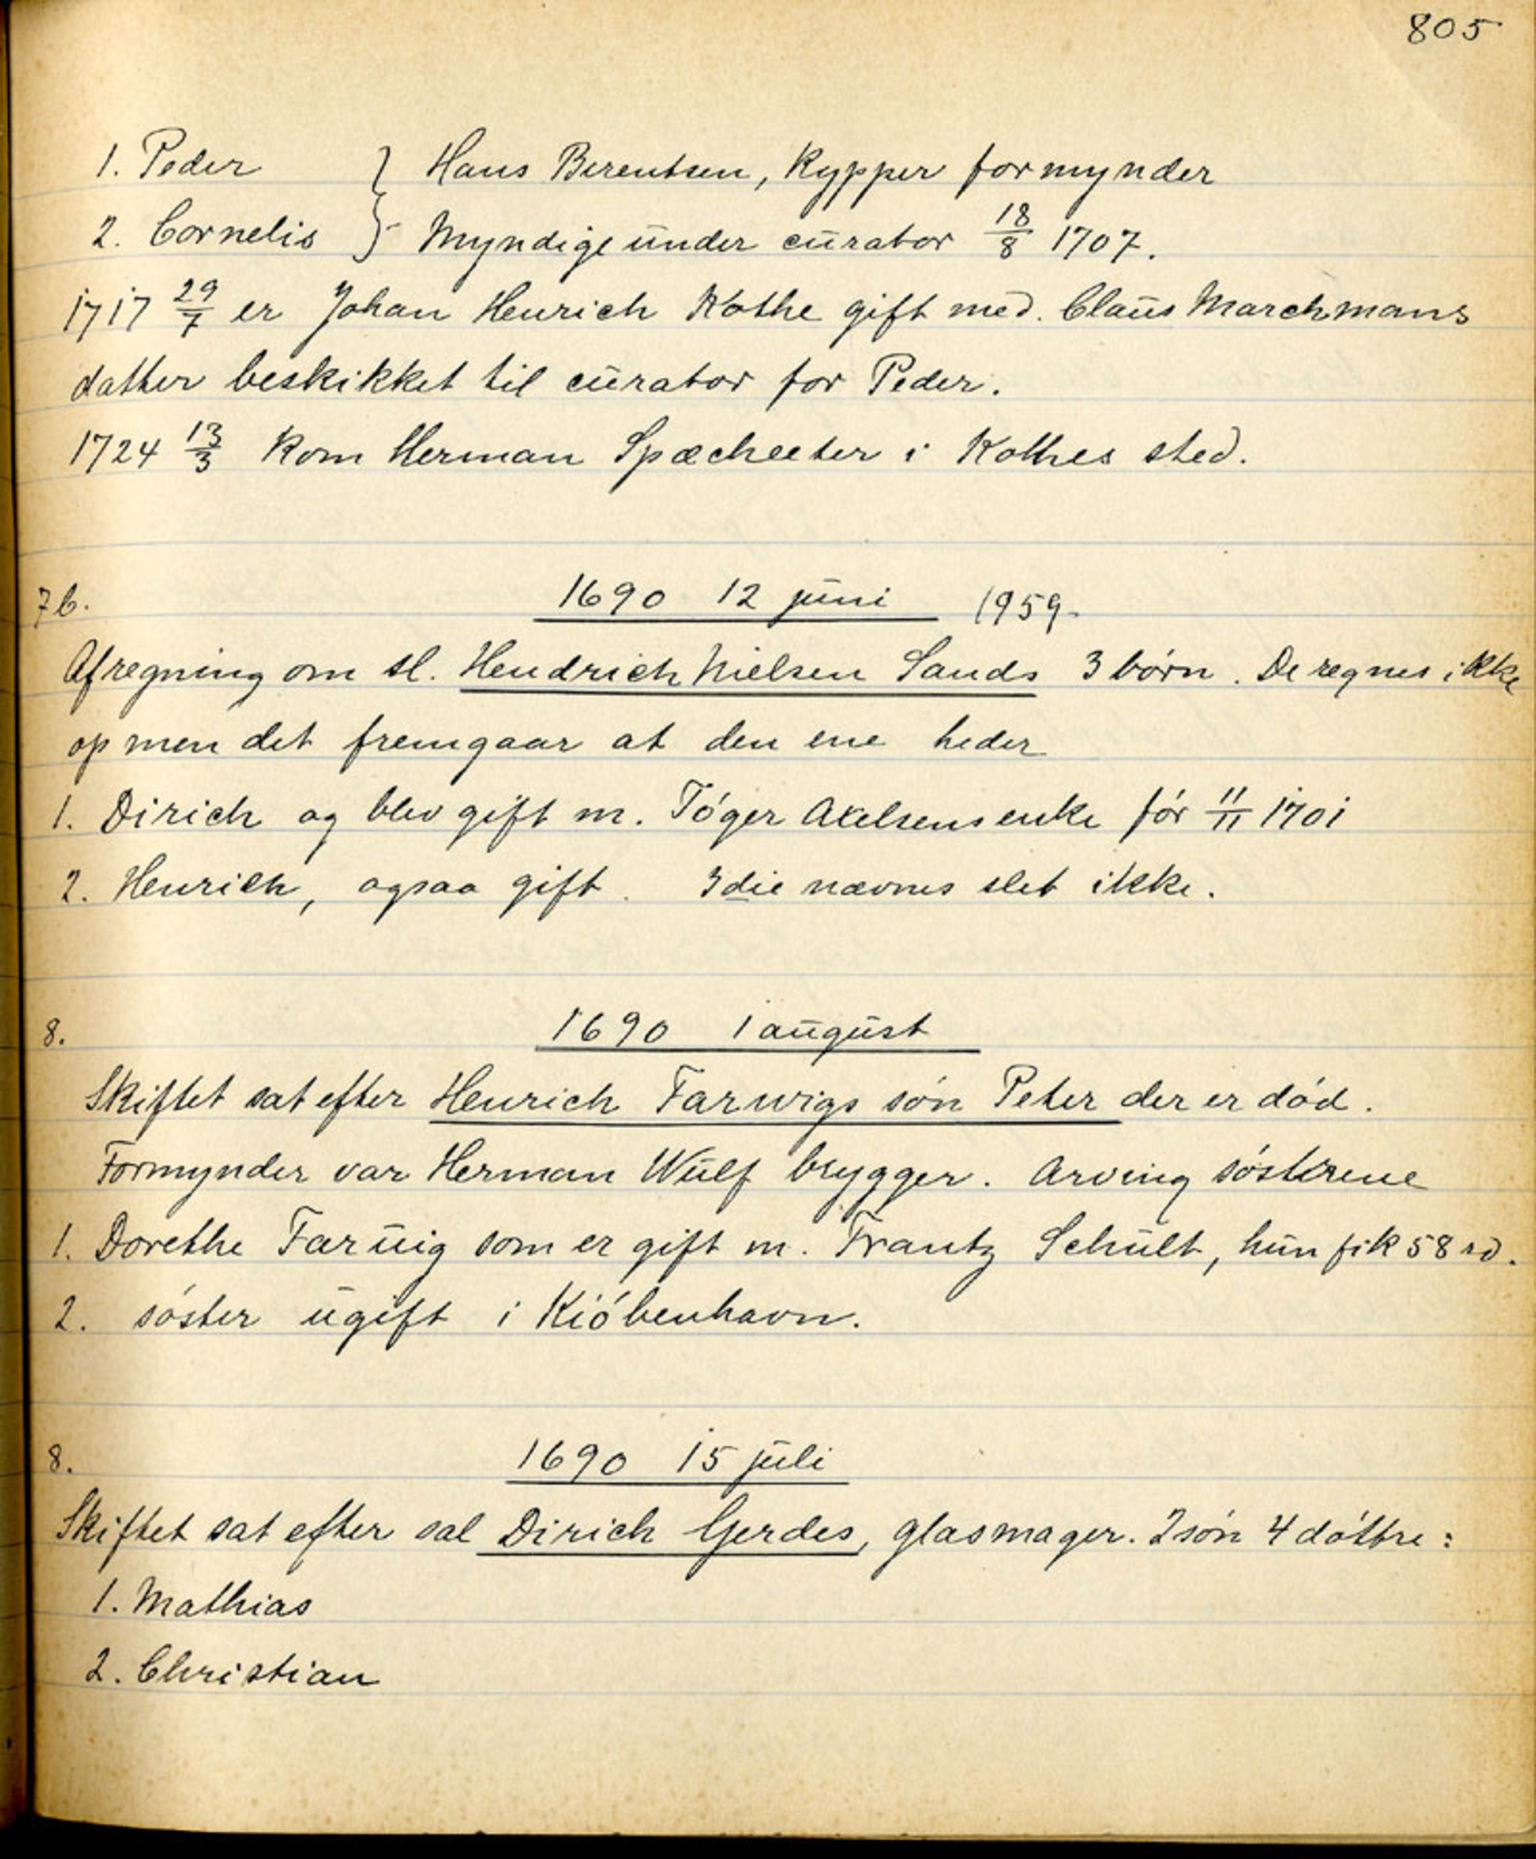 805
1. Peder } Hans Berentsen, Kypper formynder
2. Cornelis } Myndige under curator 18/8 1707.
1717 29/7 er Johan Henrich Kothe gift med. Claus Marchmans
datter beskikket til curator for Peder.
1724 13/3 kom Herman Spæcheeter i Kothes sted.
7b. 1690 12 juni 1959.
Afregning om sl. Hendrich Nielsen Sands 3 børn. De regnes ikke
op men det fremgaar at den ene heder
1. Dirich og blev gift m. Tóger Axelsens enke før 11/11 1701
2. Henrich, ogsaa gift. 3die nævnes slet ikke.
8. 1690 1 august
Skiftet sat efter Henrich Farwigs søn Peter der er død.
Formynder var Herman Wulf brygger. Arving søstrene
1. Dorethe Faruig som er gift m. Frantz Schult, hun fik 58 rd.
2. søster ugift i Kióbenhavn.
8. 1690 15 juli
Skiftet sat efter sal Dirich Gerdes, glasmager. 2 søn 4 døttre:
1. Mathias
2. Christian